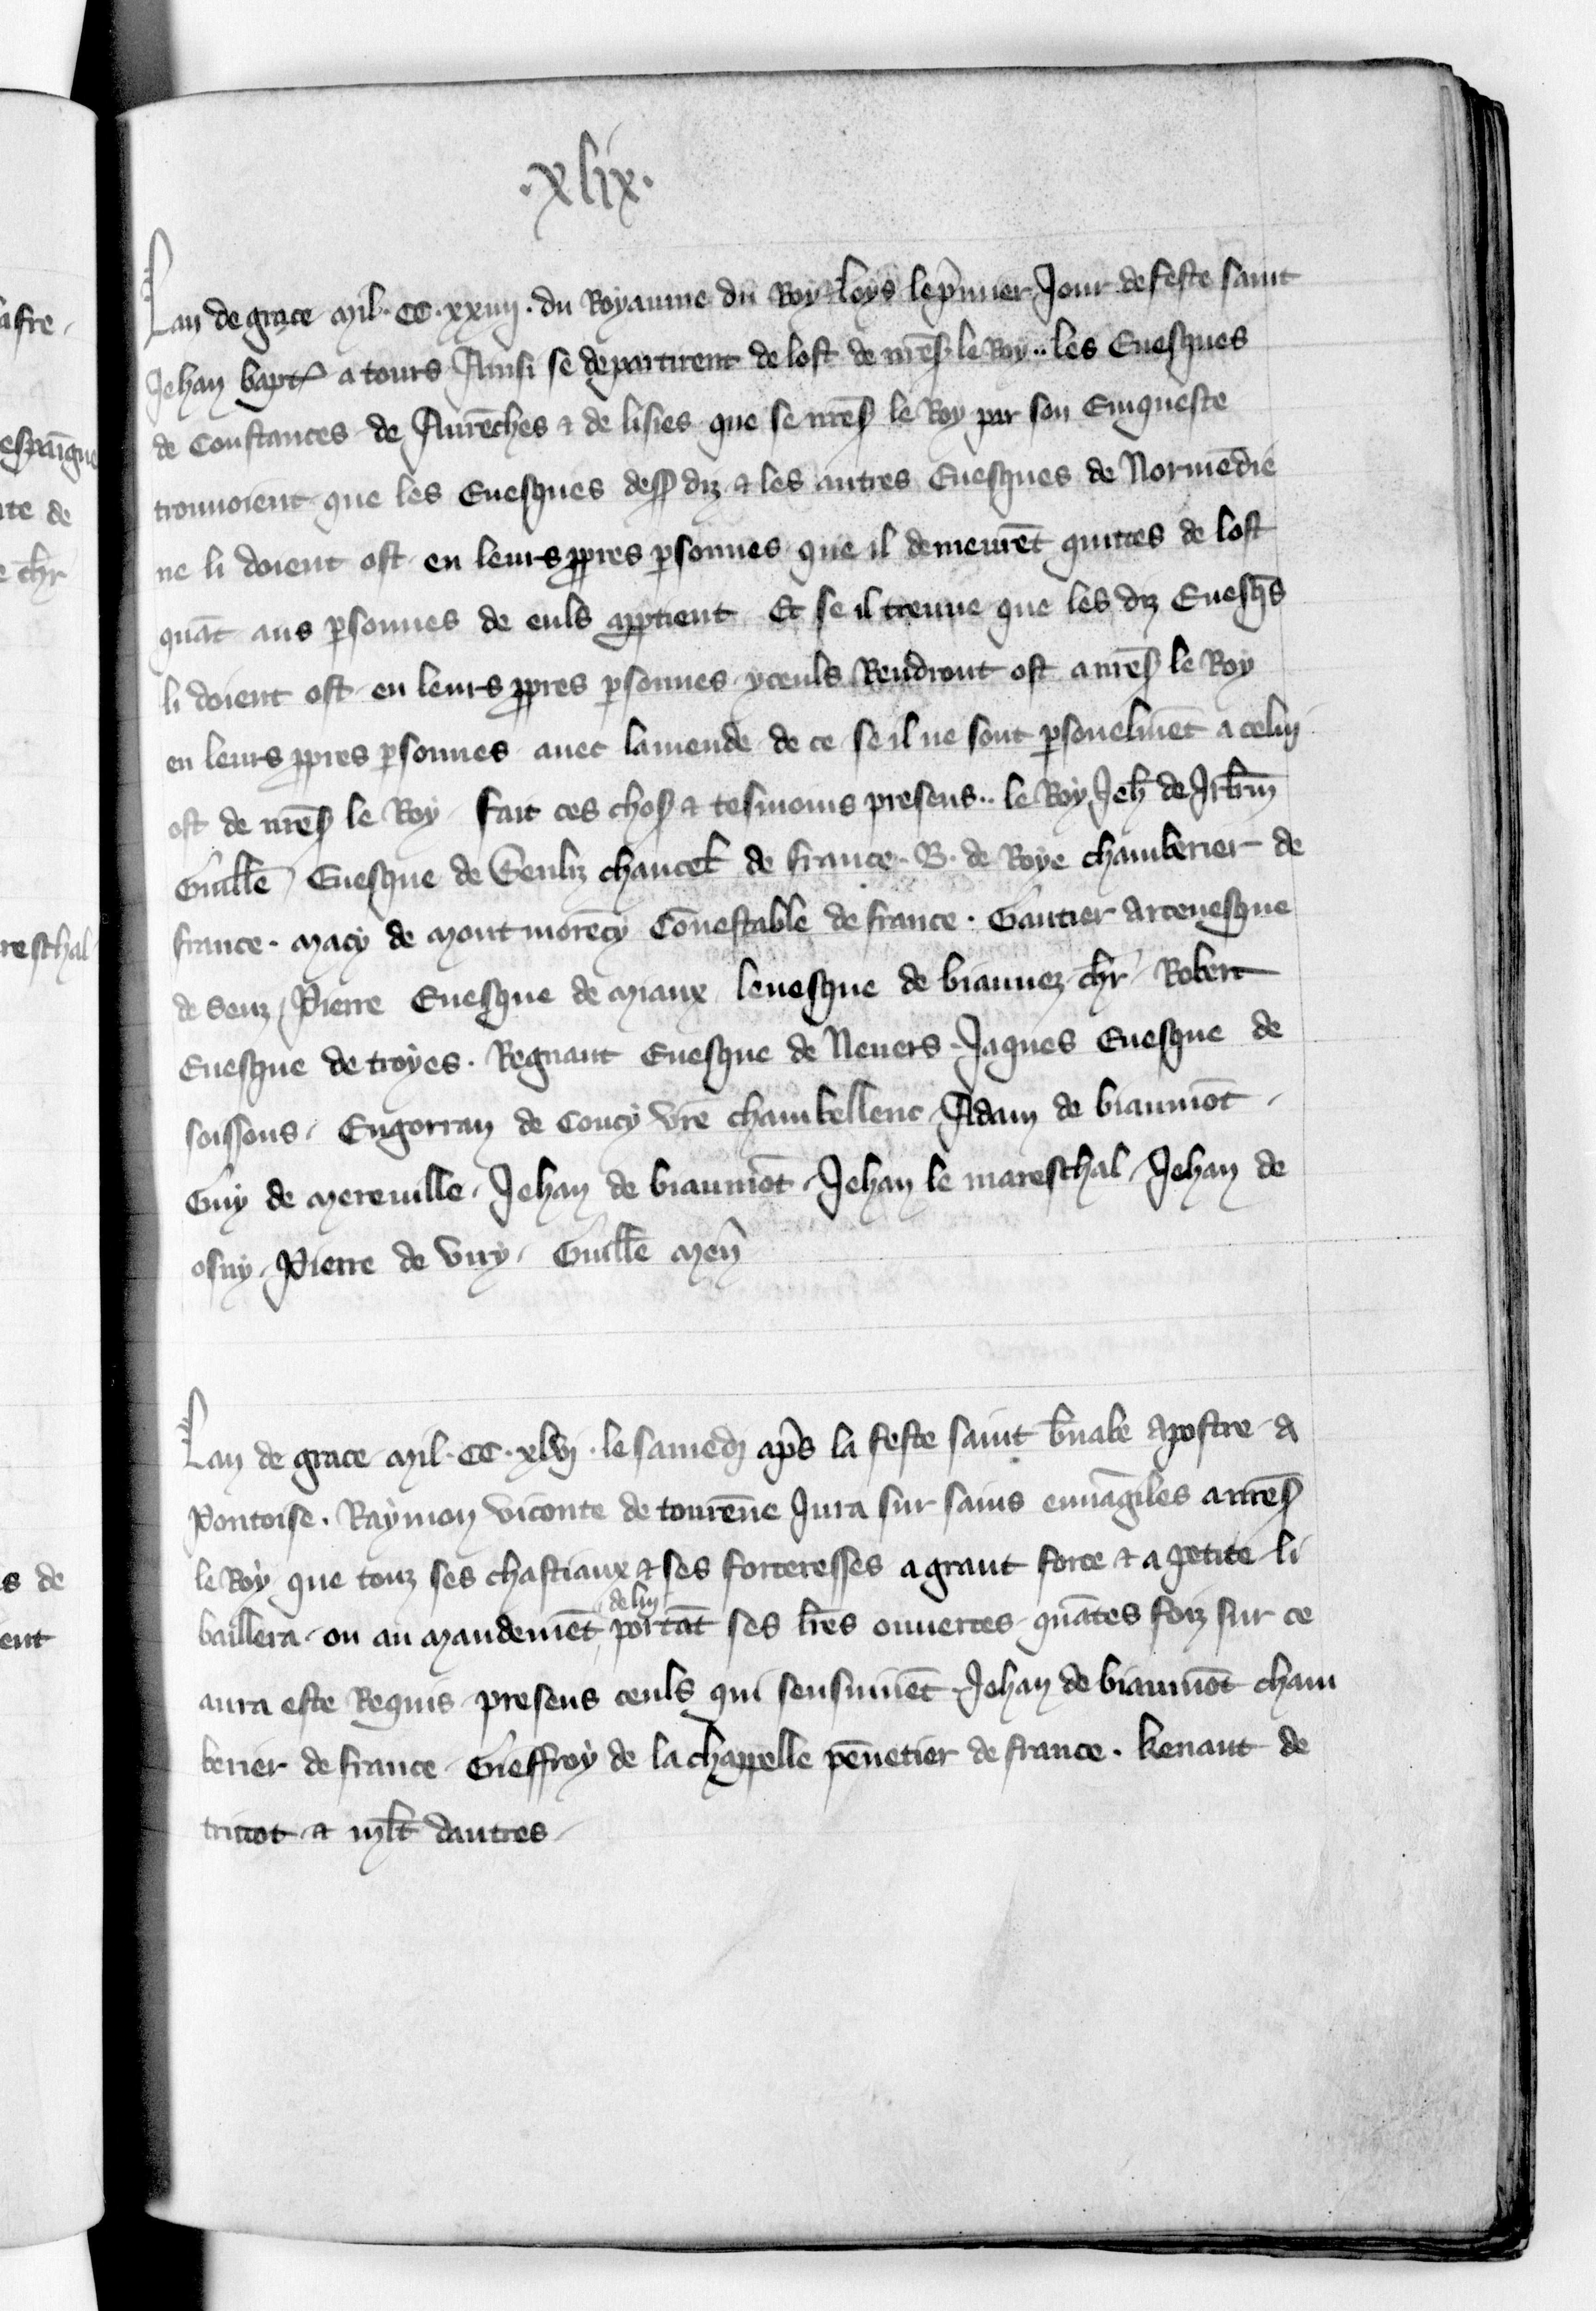 .xlix.
Lan de grace mil. CC. xxiiij. du Royaume du Roy Loys le p̄mier Jour de feste saint
Jehan bapt̄ a tours Ainsi se departirent de lost de nr̄eſ le Roy.. les Euesques
de Constances de Aurēches & de lisies que se nr̄eſ le Roy par son Enqueste
trouuoient que les Euesques desſ diz & les autres Euesques de Normēdie
ne li doient ost en leurs ꝓpres ꝑsonnes que il demeurēt quittes de lost
quāt aus ꝑsonnes de euls apꝑtient Et se il treuue que les diz Euesq̄s
li doient ost en leurs ꝓpres ꝑsonnes yceuls Rendront ost a nr̄eſ le Roy
en leurs ꝓpres ꝑsonnes auec lamende de ce se il ne sont ꝑsonelmēt a celuj
ost de nr̄eſ le Roy fait ces choſ & tesmoins presens.. le Roy Jeh̄ de Jrl̄m
Guill̄e Euesque de Senliz chancel̄ de france. B. de Roye chamberier de
france. Macy de Montmorēcy Cōnestable de france. Gautier Arceuesque
de Senz Pierre Euesque de Miaux leuesque de biauuez ch̄r Robert
Euesque de troyes. Regnaut Euesque de Neuers Jaques Euesque de
soissons. Engorran de Coucy vr̄e chambellenc Adam de biaumōt
Guy de Mereuille Jehan de biaumōt Jehan le mareschal Jehan de
osny Pierre de viry Guill̄e Men̄
Lan de grace mil. CC. xlvj. le samedj ap̄s la feste saint b̄nabe Apostre A
Pontoise. Raymon viconte de tourēne Jura sur sains euuāgiles a nr̄eſ
le Roy que touz ses chastiaux & ses forteresses a grant force & a petite li
baillera ou au mandemēt de luj portāt ses l̄res ouuertes quātes foiz sur ce
aura este Requis presens ceuls qui sensuiuēt Jehan de biaumōt cham
berier de france Gieffroy de la chappelle pēnetier de france. Renaut de
tricot & ml̄t dautres